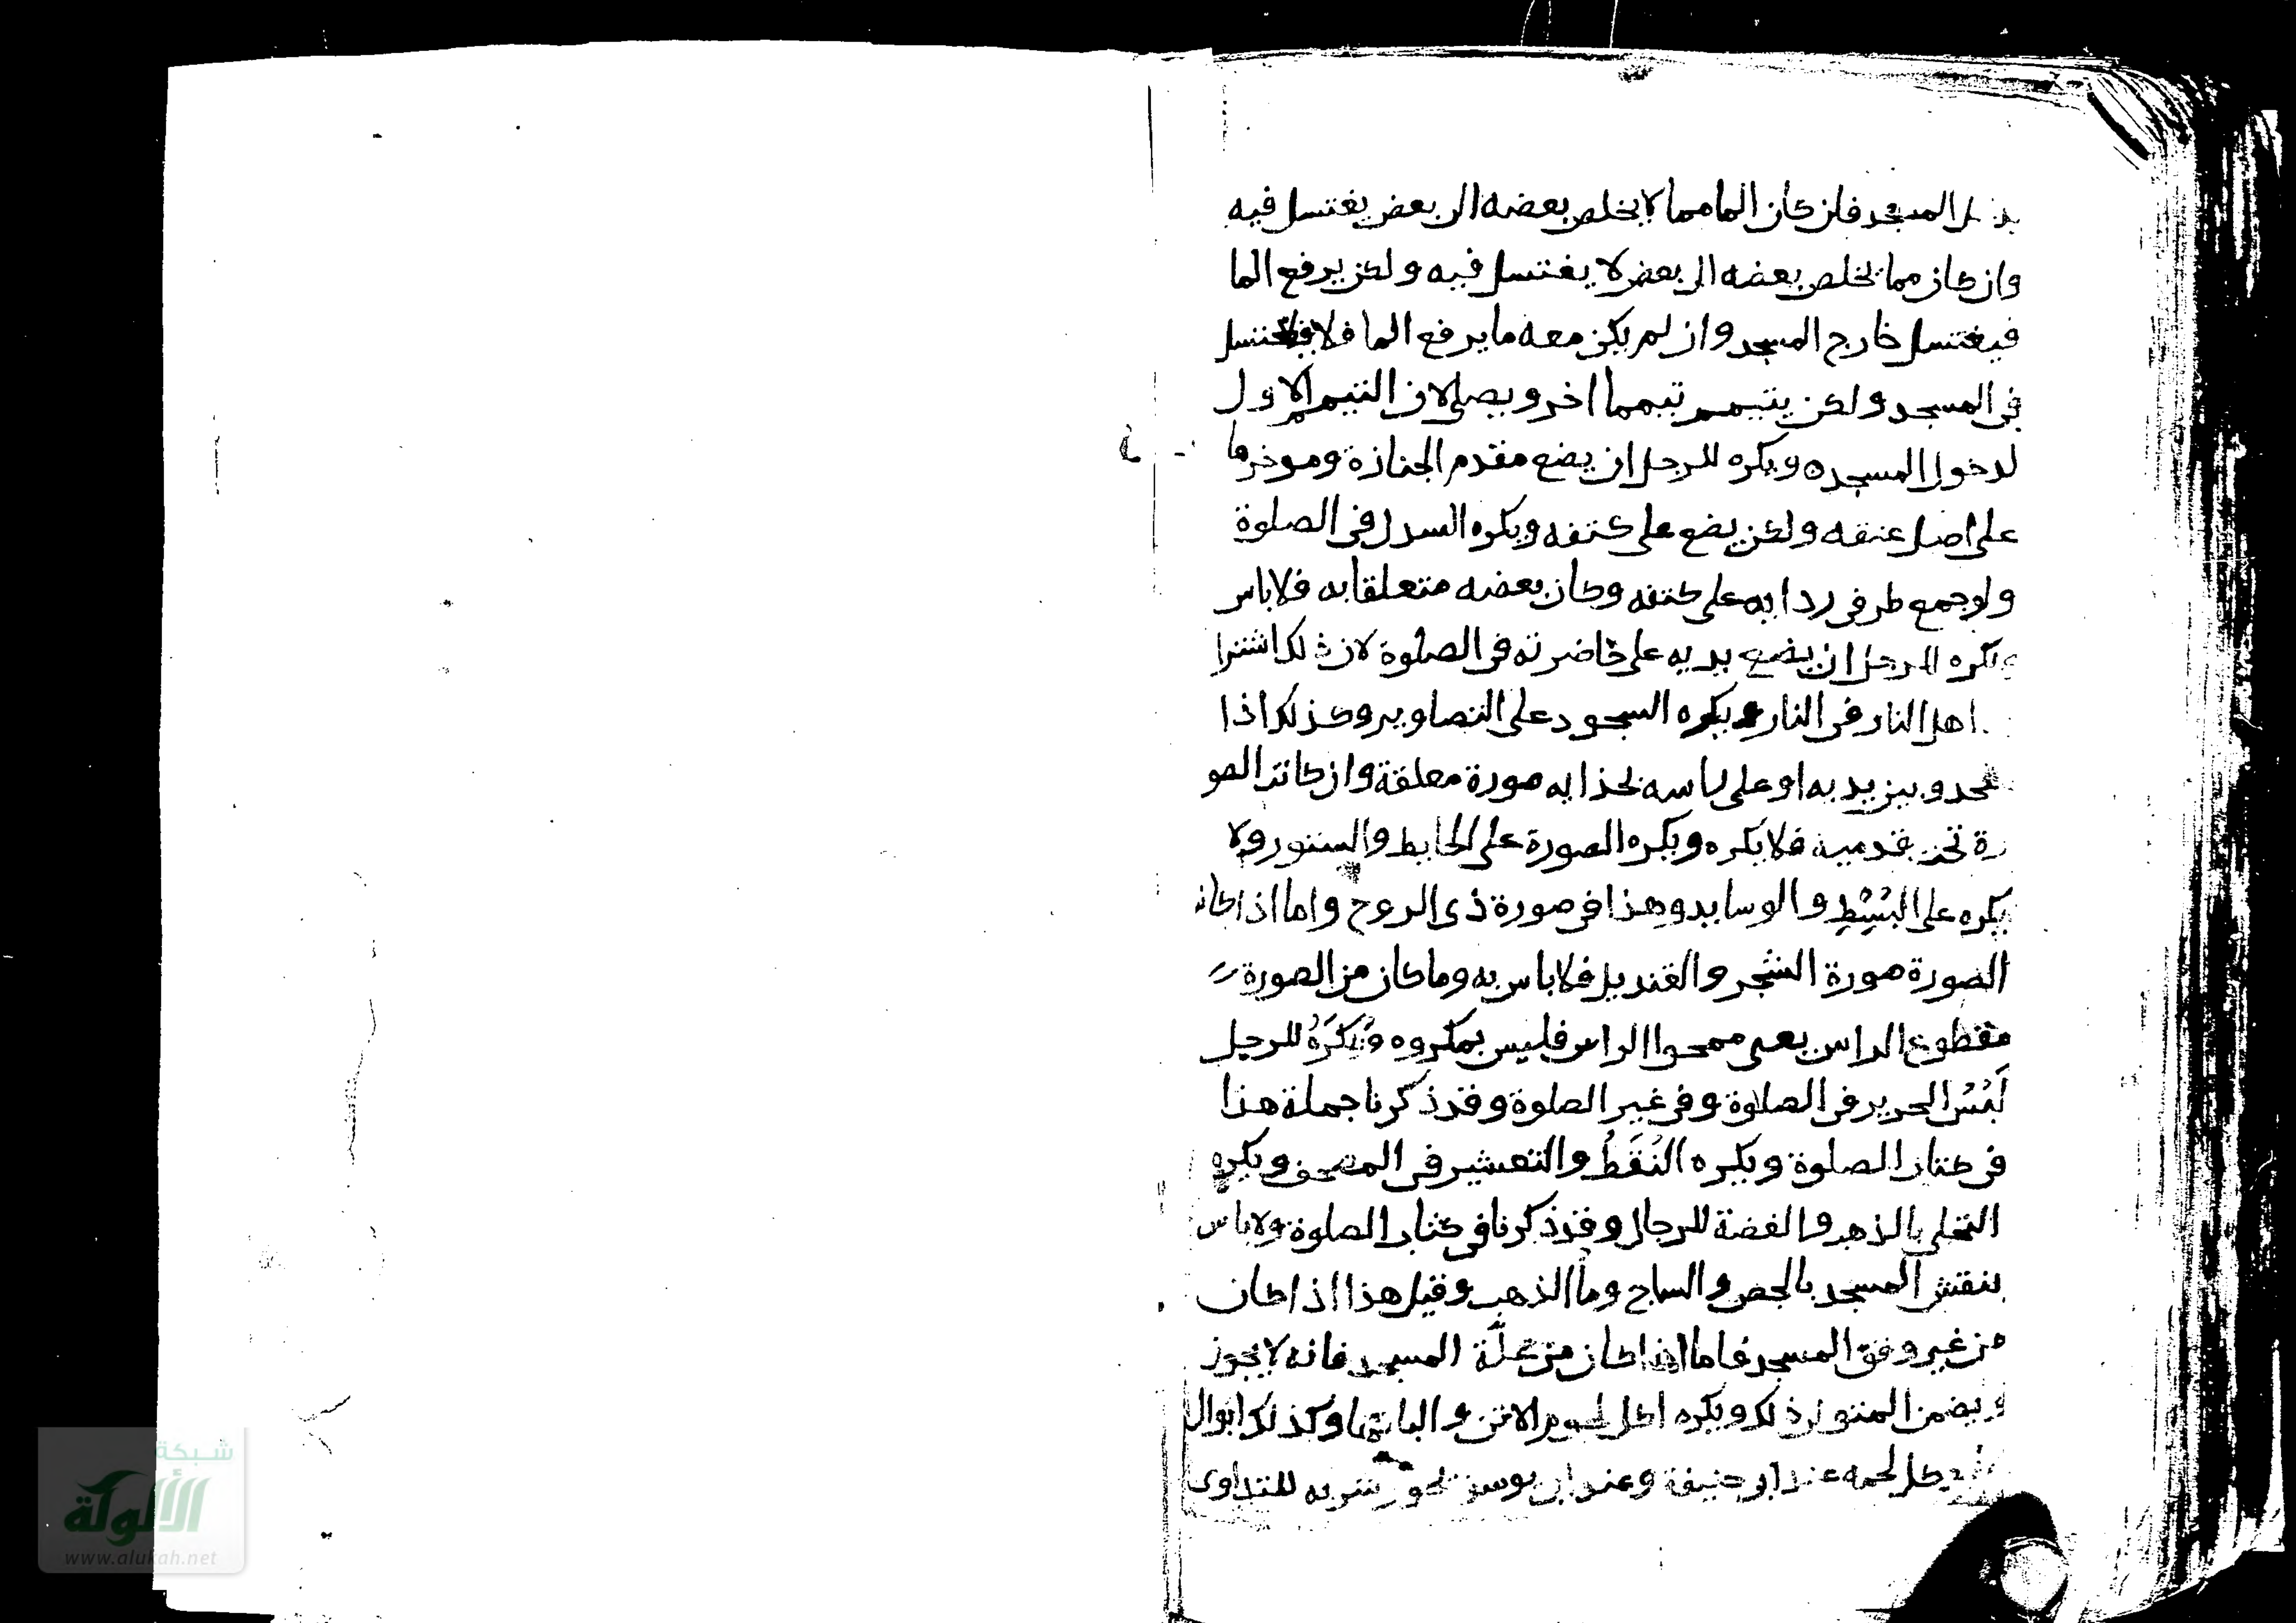 المسجد فان كان الما مما لا يخلص بعضه الى بعض يغتسل فيه
وان كان مما يخلص بعضه الى بعض لا يغتسل فيه ولكن يرفع الما
فيغتسل خارج المسجد وان لم يكن معه ما يرفع الما فلا يغتسل
فى المسجد ولكن يتيمم تيمما اخر ويصلى لان التيمم الاول
لدخول المسجد ويكره للرجل ان يضع مقدم الجنازة وموخرها
على اصل عنقه ولكن يضع على كتفه ويكره السدل فى الصلوة
ولو جمع طرفى ردايه على كتفه وكان بعضه متعلقا به فلا باس
ويكره للرجل ان يضع يديه على خاصرته فى الصلوة لان ذلك
اهل النار فى النار ويكره السجود على التصاوير وكذلك اذا
سجد وبين يديه او على راسه بحذايه صورة معلقة وان كانت الصو
رة تحت قدميه فلا يكره ويكره الصورة على الحايط والستور ولا
يكره على البُسُطِ والوسايد وهذا فى صورة ذى الروح واما اذا كانت
الصورة صورة الشجر والقنديل فلا باس به وما كان من الصورة
مقطوع الراس يعنى ممحوا الراس فليس بمكروه وَيُكرَهُ للرجل
لَبْسُ الحرير فى الصلوة وفى غير الصلوة وقد ذكرنا جملة هذا
فى كتاب الصلوة ويكره النُقَطُ والتعشير فى المصحف ويكره
التحلى بالذهب والفضة للرجال وقد ذكرنا فى كتاب الصلوة ولا باس
بنقش المسجد بالجص والساج وما الذهب وقيل هذا اذا كان
من غير وقف المسجد فاما اذا كان من غلّة المسجد فانه لا يجوز
ويضمن المتولى ذلك ويكره اكل لحوم الاتن والبانها وكذلك ابوال
يوكل لحمه عند ابى حنيفة وعند ابى يوسف يجوز شربه للتداوى
شبكة
الألوكة
www.alukah.net